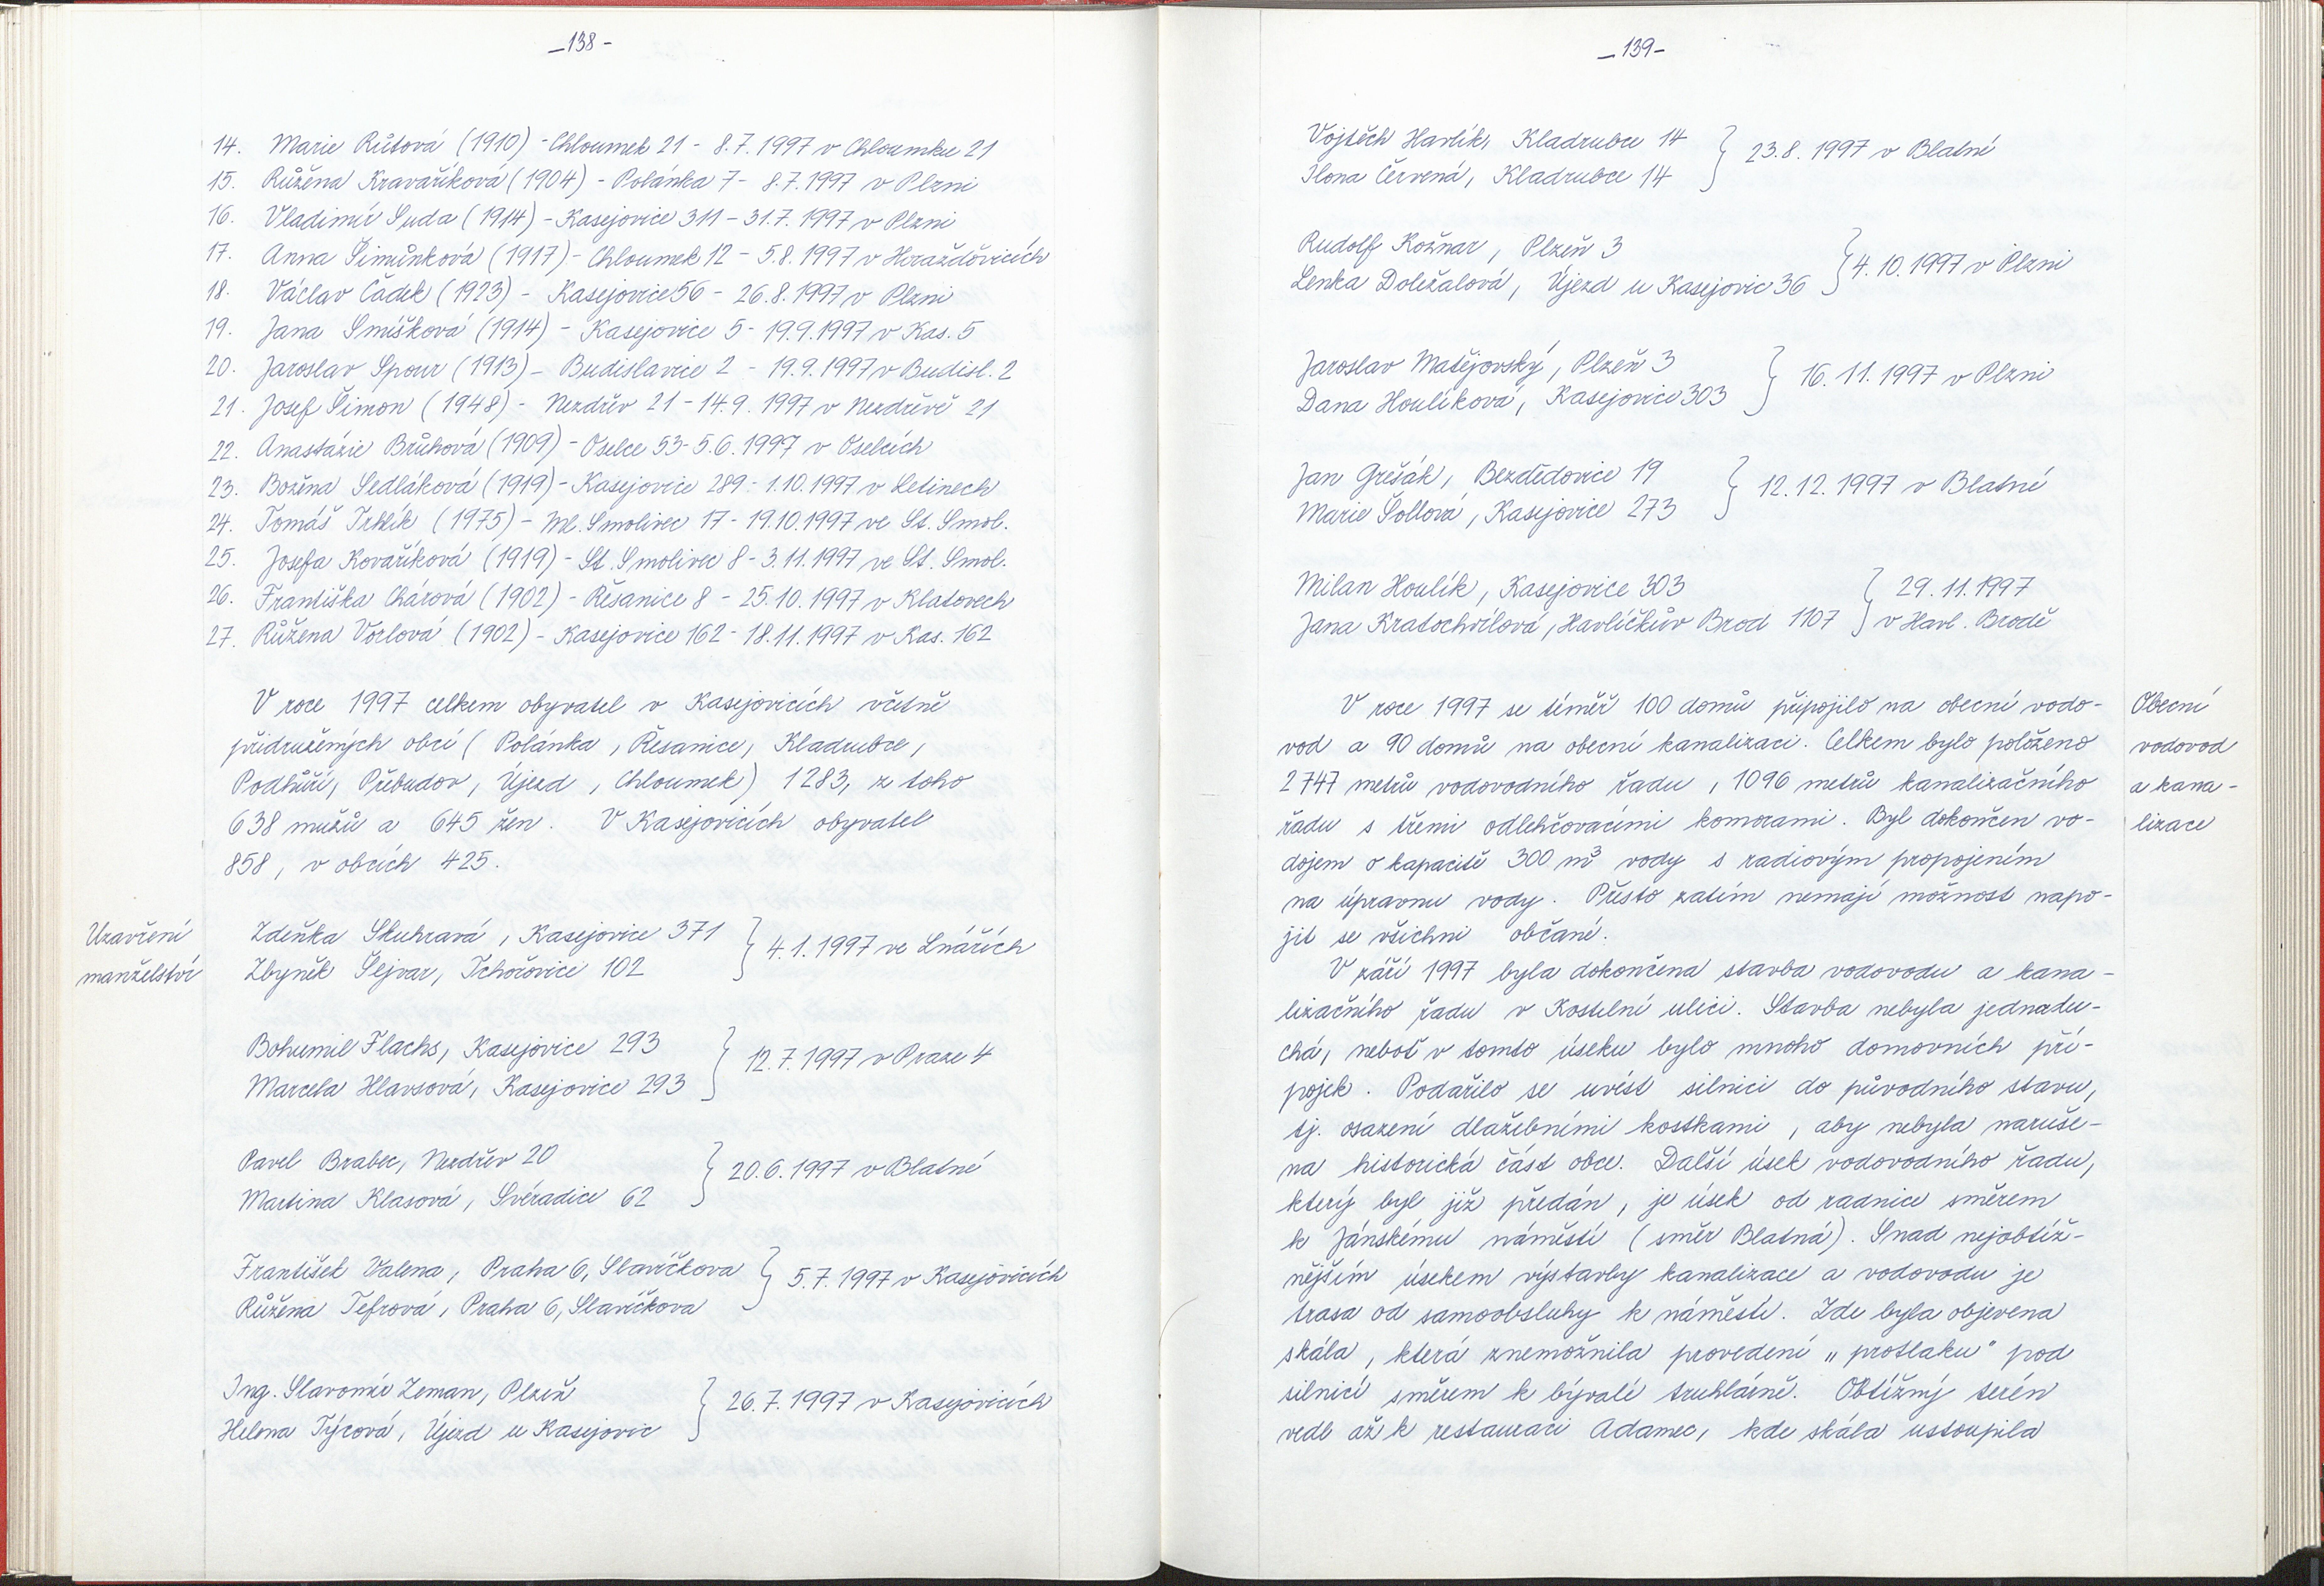 -138-
14. Marie Růtová (1910) - Chloumek 21 - 8.7.1997 v Chloumku 21
15. Růžena Kravaříková (1904) - Polánka 7 - 8.7.1997 v Plzni
16. Vladimír Suda (1914) - Kasejovice 311 - 31.7.1997 v Plzni
17. Anna Šimůnková (1917) - Chloumek 12 - 5.8.1997 v Horažďovicích
18. Václav Čadek (1923) - Kasejovice 56 - 26.8.1997 v Plzni
19. Jana Smíšková (1914) - Kasejovice 5 - 19.9.1997 v Kas. 5
20. Jaroslav Spour (1913) - Budislavice 2 - 19.9.1997 v Budisl. 2
21. Josef Šimon (1948) - Nezdřev 21 - 14.9.1997 v Nezdřevě 21
22. Anastázie Brůhová (1909) - Oselce 53 - 5.6.1997 v Oselcích
23. Božena Sedláková (1919) - Kasejovice 289 - 1.10.1997 v Letinech
24. Tomáš Trhlík (1975) - Ml. Smolivec 17 - 19.10.1997 ve St. Smol.
25. Josefa Kovaříková (1919) - St. Smolivec 8 - 3.11.1997 ve St. Smol.
26. Františka Chárová (1902) - Řesanice 8 - 25.10.1997 v Klatovech
27. Růžena Vorlová (1902) - Kasejovice 162 - 18.11.1997 v Kas. 162
V roce 1997 celkem obyvatel v Kasejovicích včetně
přidružených obcí (Polánka, Řesanice, Kladrubce,
Podhůří, Přebudov, Újezd, Chloumek) 1283, z toho
638 mužů a 645 žen. V Kasejovicích obyvatel
858, v obcích 425.
Uzavření
manželství
Zdeňka Skuhravá, Kasejovice 371 } 4.1.1997 ve Lnářích
Zbyněk Šejvar, Tchořovice 102
Bohumil Flachs, Kasejovice 293 } 12.7.1997 v Praze 4
Marcela Hlavsová, Kasejovice 293
Pavel Brabec, Nezdřev 20 } 20.6.1997 v Blatné
Martina Klasová, Svéradice 62
František Valena, Praha 6, Slavíčkova } 5.7.1997 v Kasejovicích
Růžena Tefrová, Praha 6, Slavíčkova
Ing. Slavomír Zeman, Plzeň } 26.7.1997 v Kasejovicích
Helena Týcová, Újezd u Kasejovic
-139-
Vojtěch Havlík, Kladrubce 14 } 23.8.1997 v Blatné
Ilona Červená, Kladrubce 14
Rudolf Kožnar, Plzeň 3 } 4.10.1997 v Plzni
Lenka Doležalová, Újezd u Kasejovic 36
Jaroslav Matějovský, Plzeň 3 } 16.11.1997 v Plzni
Dana Houlíková, Kasejovice 303
Jan Grešák, Bezdědovice 19 } 12.12.1997 v Blatné
Marie Šollová, Kasejovice 273
Milan Houlík, Kasejovice 303 } 29.11.1997
Jana Kratochvílová, Havlíčkův Brod 1107 } v Havl. Brodě
V roce 1997 se téměř 100 domů připojilo na obecní vodo-
vod a 90 domů na obecní kanalizaci. Celkem bylo položeno
2747 metrů vodovodního řadu, 1096 metrů kanalizačního
řadu s třemi odlehčovacími komorami. Byl dokončen vo-
dojem o kapacitě 300 m³ vody s radiovým propojením
na úpravnu vody. Přesto zatím nemají možnost napo-
jit se všichni občané.
Obecní
vodovod
a kana-
lizace
V září 1997 byla dokončena stavba vodovodu a kana-
lizačního řadu v Kostelní ulici. Stavba nebyla jednodu-
chá, neboť v tomto úseku bylo mnoho domovních pří-
pojek. Podařilo se uvést silnici do původního stavu,
tj. osazení dlažebními kostkami, aby nebyla naruše-
na historická část obce. Další úsek vodovodního řadu,
který byl již předán, je úsek od radnice směrem
k Jánskému náměstí (směr Blatná). Snad nejobtíž-
nějším úsekem výstavby kanalizace a vodovodu je
trasa od samoobsluhy k náměstí. Zde byla objevena
skála, která znemožnila provedení „protlaku" pod
silnicí směrem k bývalé truhlárně. Obtížný terén
vedl až k restauraci Adamec, kde skála ustoupila